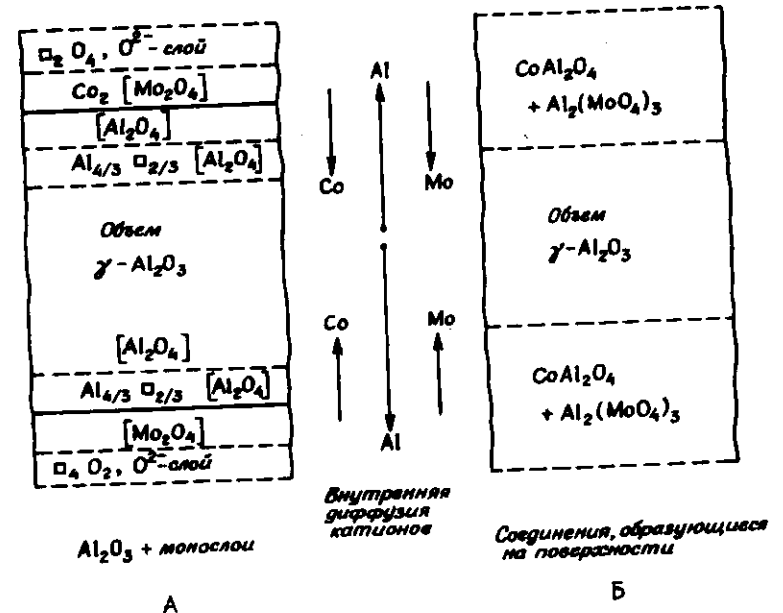 □₂ O₄, O²⁻-слой
Co₂ [Mo₂O₄]
[Al₂O₄]
Al₄/₃ □₂/₃ [Al₂O₄]
Объем
γ-Al₂O₃
[Al₂O₄]
Al₄/₃ □₂/₃ [Al₂O₄]
[Mo₂O₄]
□₄ O₂, O²⁻-слой
Al₂O₃ + монослои
А
Al
Co
Mo
Co
Mo
Al
Внутренняя
диффузия
катионов
CoAl₂O₄
+ Al₂(MoO₄)₃
Объем
γ-Al₂O₃
CoAl₂O₄
+ Al₂(MoO₄)₃
Соединения, образующиеся
на поверхности
Б